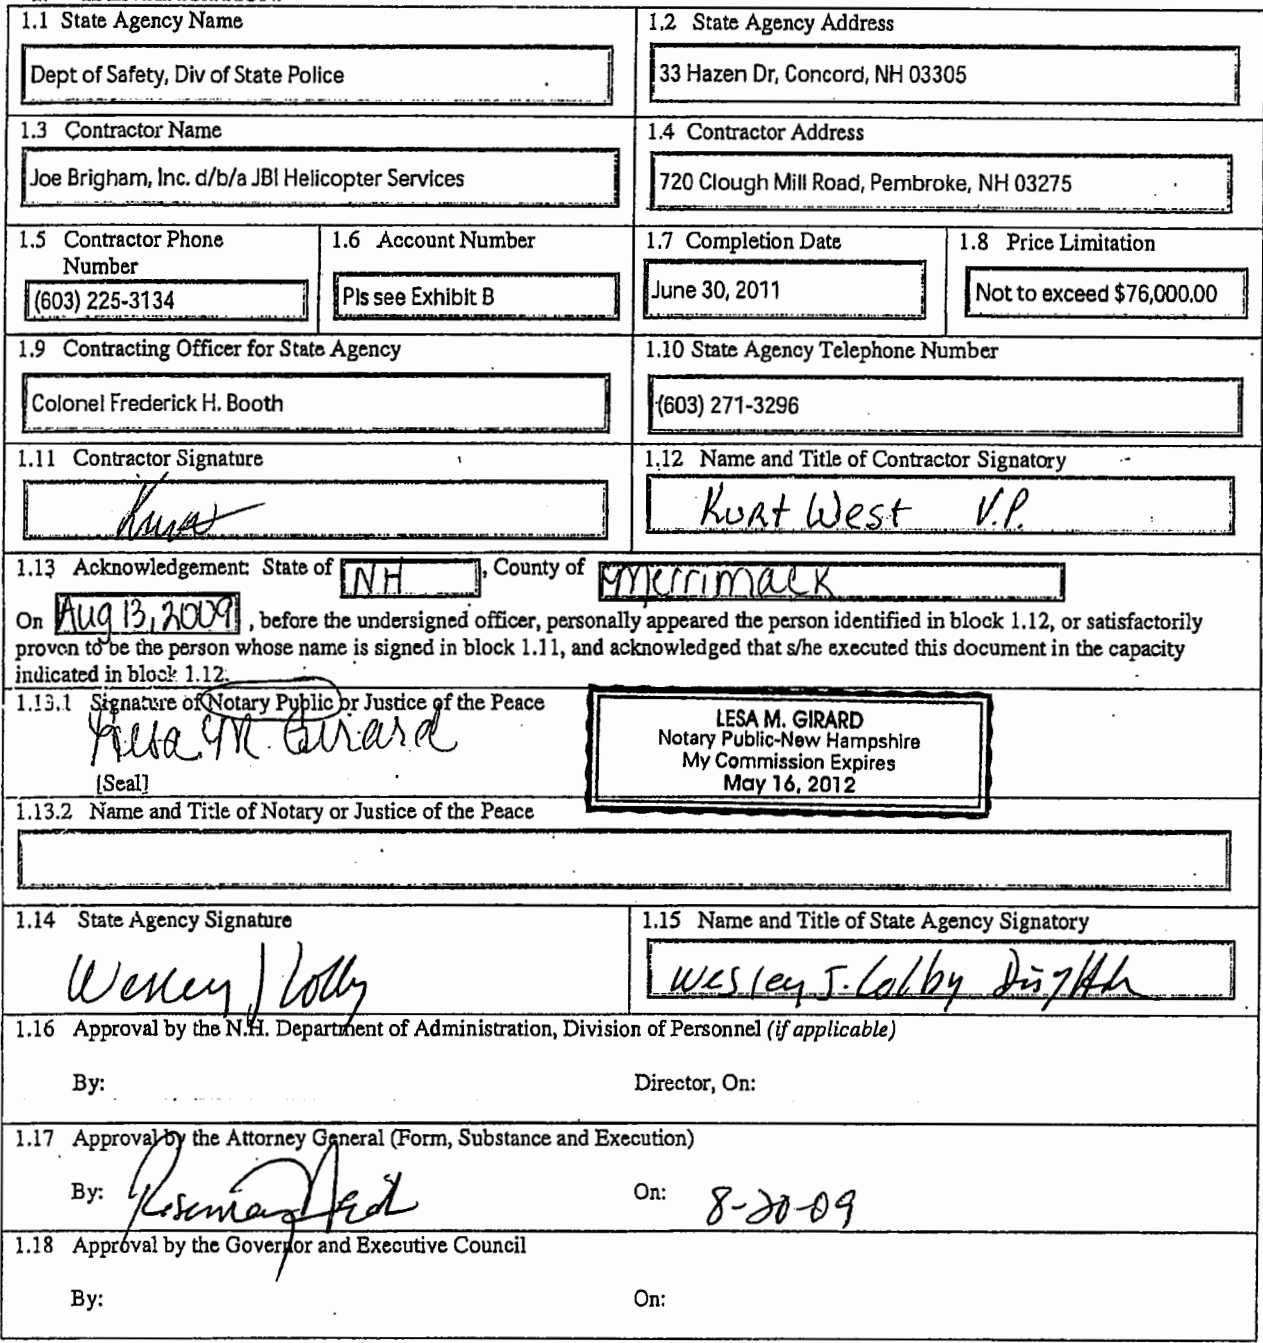 1.1 State Agency Name
Dept of Safety, Div of State Police
1.2 State Agency Address
33 Hazen Dr, Concord, NH 03305
1.3 Contractor Name
Joe Brigham, Inc. d/b/a JBI Helicopter Services
1.4 Contractor Address
720 Clough Mill Road, Pembroke, NH 03275
1.5 Contractor Phone
Number
(603) 225-3134
1.6 Account Number
Pls see Exhibit B
1.7 Completion Date
June 30, 2011
1.8 Price Limitation
Not to exceed $76,000.00
1.9 Contracting Officer for State Agency
Colonel Frederick H. Booth
1.10 State Agency Telephone Number
(603) 271-3296
1.11 Contractor Signature
1.12 Name and Title of Contractor Signatory
Kurt West V.P.
1.13 Acknowledgement: State of NH, County of Merrimack
On Aug 13, 2009, before the undersigned officer, personally appeared the person identified in block 1.12, or satisfactorily
proven to be the person whose name is signed in block 1.11, and acknowledged that s/he executed this document in the capacity
indicated in block 1.12.
1.13.1 Signature of Notary Public or Justice of the Peace
Lesa M. Girard
[Seal]
LESA M. GIRARD
Notary Public-New Hampshire
My Commission Expires
May 16, 2012
1.13.2 Name and Title of Notary or Justice of the Peace
1.14 State Agency Signature
Wesley J Colby
1.15 Name and Title of State Agency Signatory
Wesley J. Colby
1.16 Approval by the N.H. Department of Administration, Division of Personnel (if applicable)
By:
Director, On:
1.17 Approval by the Attorney General (Form, Substance and Execution)
By: Rosemary
On: 8-20-09
1.18 Approval by the Governor and Executive Council
By:
On: